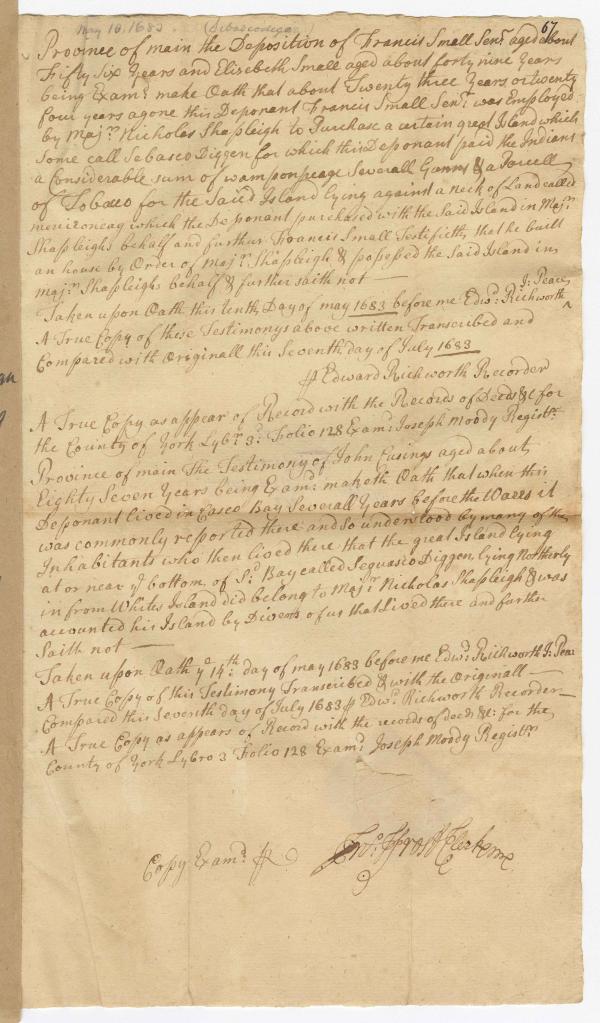 May 10. 1683 (Sebascodegan)
67
Province of main the Deposition of Francis Small Senr. aged about
Fifty Six Years and Elisebeth Small aged about forty nine Years
being Examd. make Oath that about Twenty three Years or twenty
four years agone this Deponant Francis Small Senr. was Employed
by Majr. Nicholas Shapleigh to Purchase a certain great Island which
some call Sebasco Diggen for which this Deponant paid the Indians
a Considerable sum of wampompeage Severall Gunns & a Parcell
of Tobacco for the Said Island lying against a neck of Land called
merriconeag which the Deponant purchased with the Said Island in Majr.
Shapleighs behalf and furthur Francis Small Testifieth that he built
an house by Order of Majr. Shapleigh & possessed the Said Island in
Majr. Shapleighs behalf & further saith not —
Taken upon Oath this tenth Day of may 1683 before me Edwd. Richworth
J: Peace
A True Copy of these Testimonys above written Transcribed and
Compared with Originall this Seventh day of July 1683
Edward Richworth Recorder
A True Copy as appear of Record with the Records of Deeds &c for
the County of York Lybr. 3d. Folio 128 Examd. Joseph Moody Registr.
Province of main The Testimony of John Cusings aged about
Eighty Seven Years being Examd. maketh Oath that when this
Deponant lived in Casco Bay Severall Years before the Warrs it
was commonly reported there and so understood by many of the
Inhabitants who then lived there that the great Island lying
at or near ye bottom of Sd. Bay called Sequasco Diggen, lying Notherly
in from Whites Island did belong to Majr. Nicholas Shapleigh & was
accounted his Island by Divers of us that Lived there and further
Saith not —
Taken upon Oath ye 14th. day of may 1683 before me Edwd. Richworth J: Peac
A True Copy of this Testimony Transcribed & with the Originall —
Compared this Seventh day of July 1683 Edwd. Richworth Recorder —
A True Copy as appears of Record with the records of deeds &c: for the
County of York Lybro 3 Folio 128 Examd. Joseph Moody Registr.
Copy Examd.